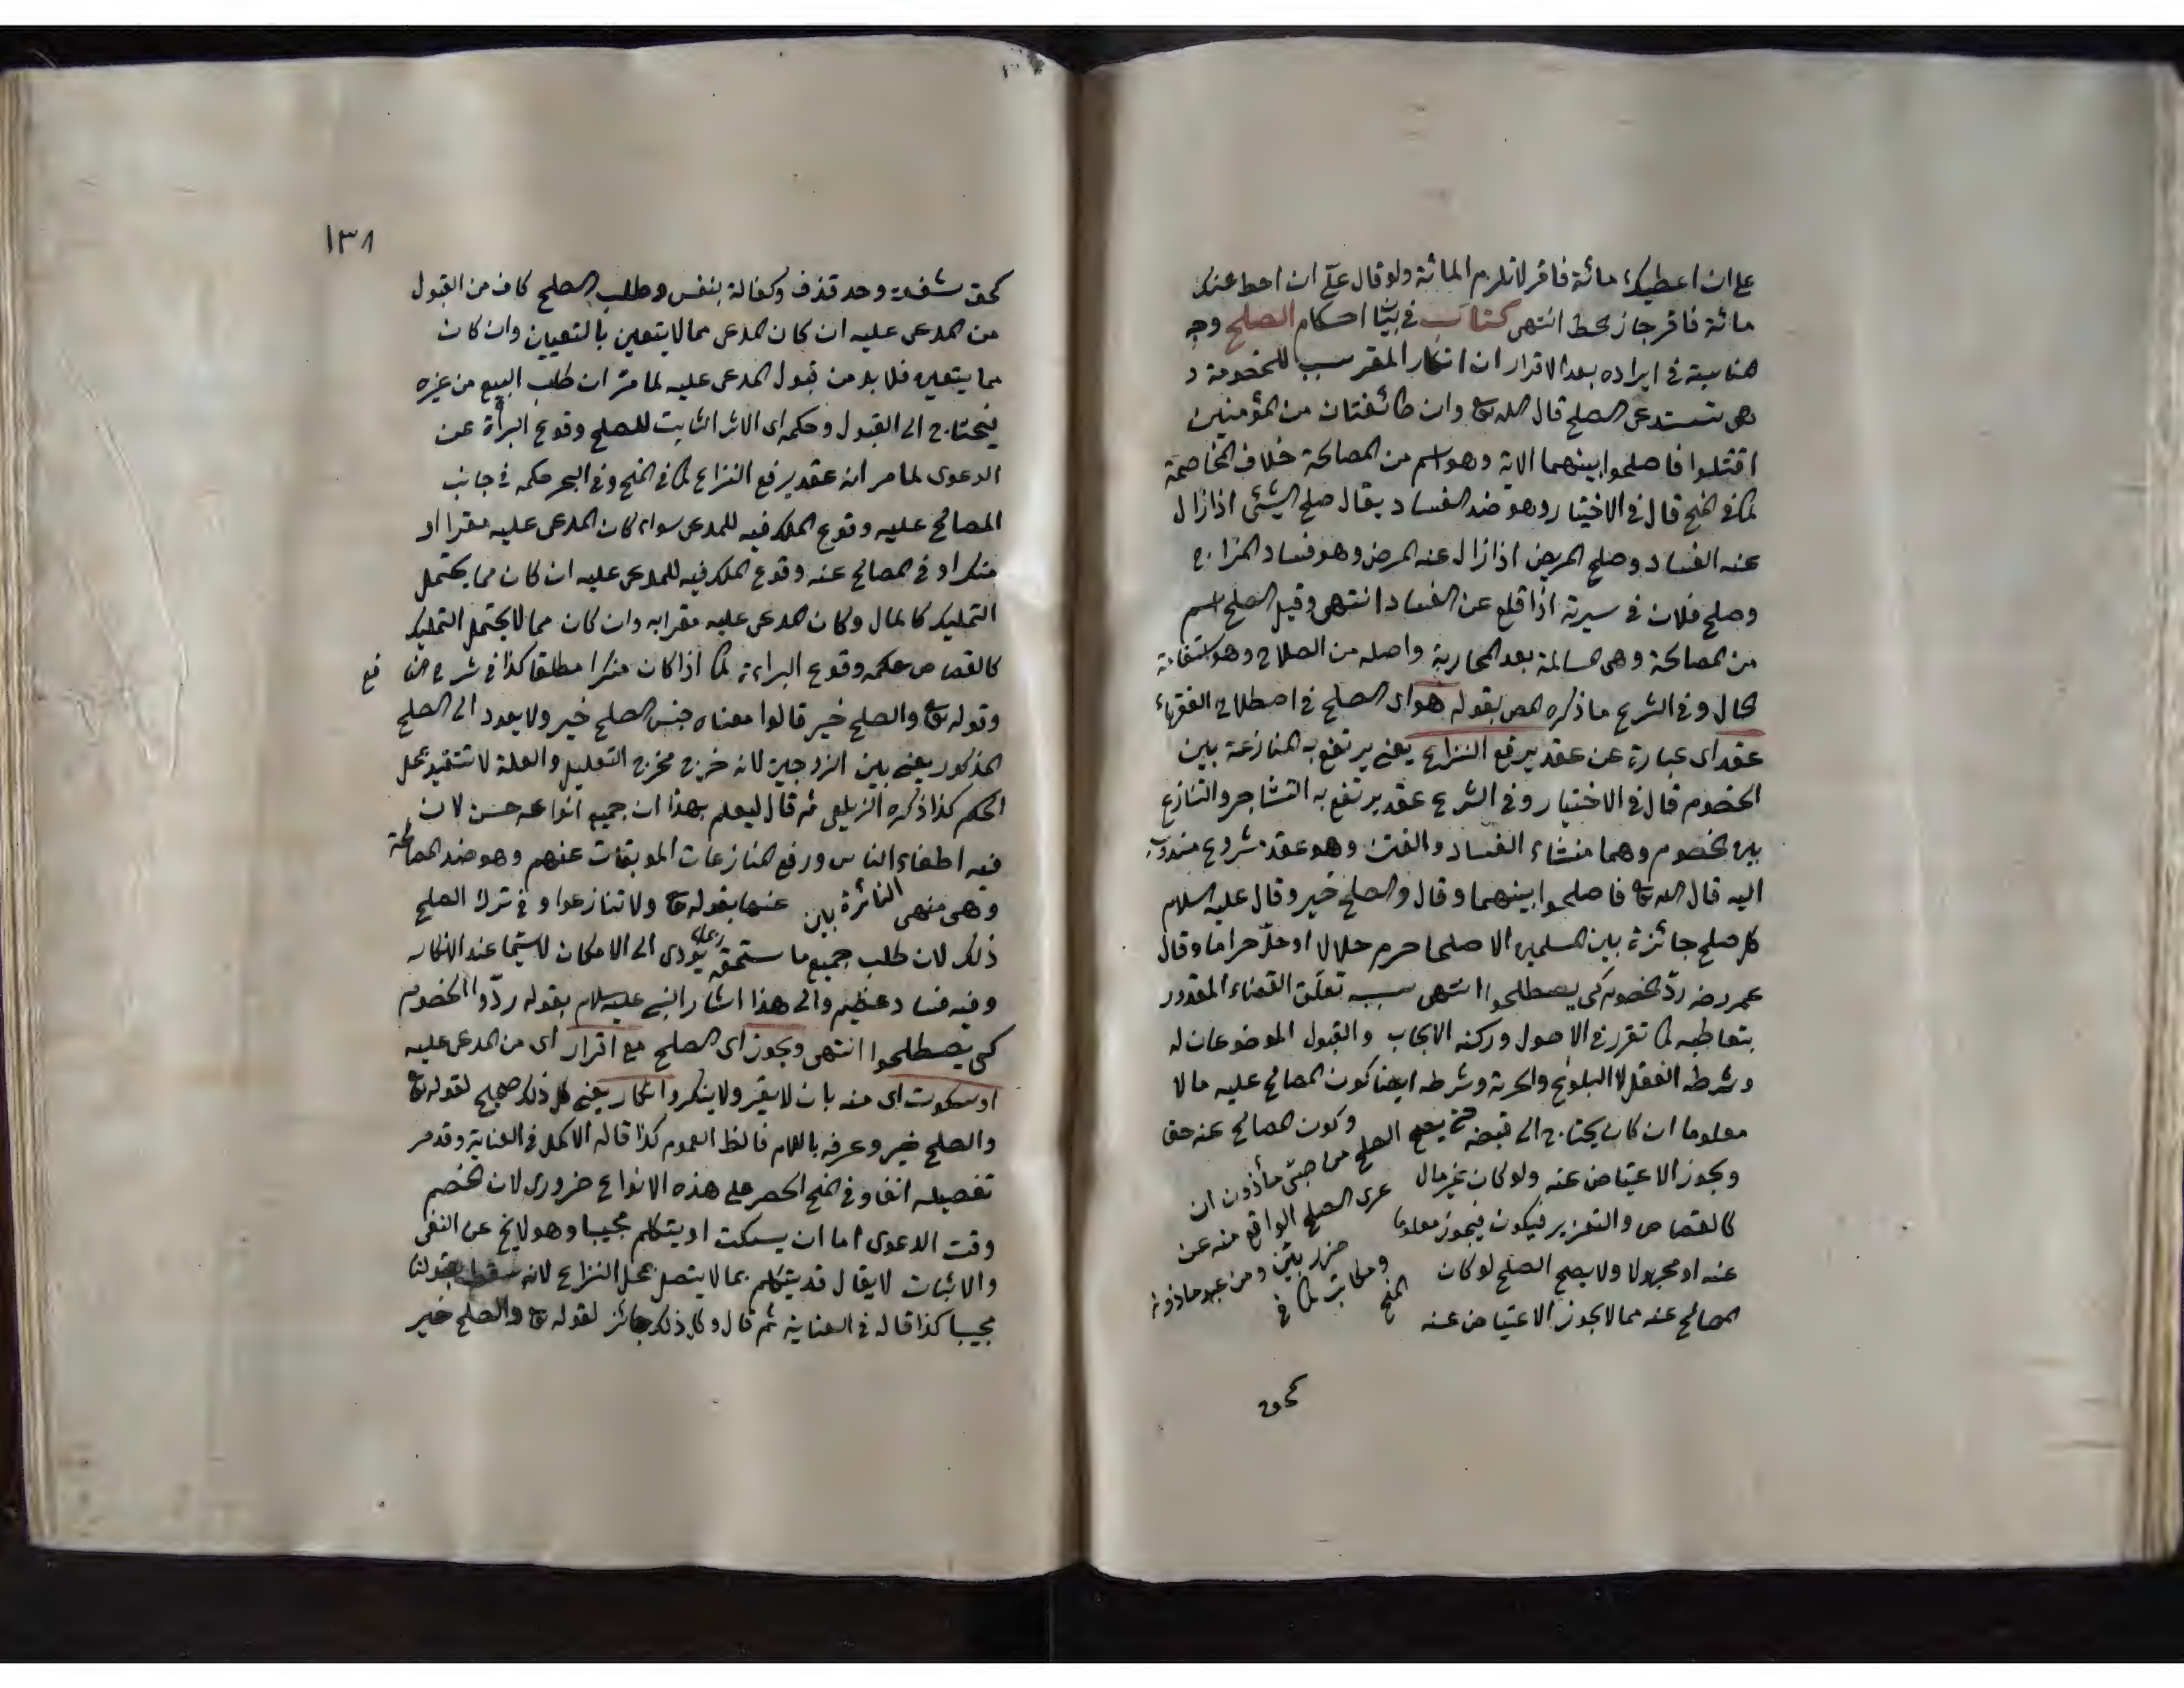 على ان اعطيك مائة فاقر لا تلزم المائة ولو قال على ان احط عنك
مائة فاقر جاز يحط انتهى كتاب في بيان احكام الصلح وجه
المناسبة في ايراده بعد الاقرار ان انكار المقر سبب للخصومة و
هى تستدعى الصلح قال الله تع وان طائفتان من المؤمنين
اقتتلوا فاصلحوا بينهما الاية وهو اسم من المصالحة خلاف المخاصمة
كما في المنح قال في الاختيار وهو ضد الفساد يقال صلح الشئ اذا زال
عنه الفساد وصلح المريض اذا زال عنه المرض وهو فساد المزاج
وصلح فلان في سيرته اذا قلع عن الفساد انتهى وقيل الصلح اسم
من المصالحة وهى المسالمة بعد المحاربة واصله من الصلاح وهو استقامة
الحال وفي الشرع ما ذكره المص بقوله هو اى الصلح في اصطلاح الفقهاء
عقد اى عبارة عن عقد يرفع النزاع يعنى يرتفع به المنازعة بين
الخصوم قال في الاختيار وفي الشرع عقد يرتفع به التشاجر والتنازع
بين الخصوم وهما منشاء الفساد والفتن وهو عقد مشروع مندوب
اليه قال الله تع فاصلحوا بينهما وقال والصلح خير وقال عليه السلام
كل صلح جائزة بين المسلمين الا صلحا حرم حلالا او حلّ حراما وقال
عمر رضه ردّ الخصوم كى يصطلحوا انتهى سببه تعلّق القضاء المقدور
بتعاطيه كما تقرر في الاصول وركنه الايجاب والقبول الموضوعان له
وشرطه العقل لا البلوغ والحرية وشرطه ايضا كون المصالح عليه مالا
معلوما ان كان يحتاج الى قبضه حتى يصح الصلح من صبىّ مأذون ان وكون المصالح عنه حق
ويجوز الاعتياض عنه ولو كان غير مال عرى الصلح الواقع منه عن
كالقصاص والتعزير فيكون فيجوز معلوما ضرر بيّن ومن عبد ماذون
عنه او مجهولا ولا يصح الصلح لو كان ومكاتب كما في
المصالح عنه مما لا يجوز الاعتياض عنه المنح
كحق
١٣٨
كحق شفعة وحد قذف وكفالة بنفس وطلب الصلح كاف من القبول
من المدعى عليه ان كان المدعى مما لا يتعين بالتعيين وان كان
مما يتعين فلا بد من قبول المدعى عليه لما مرّ ان طلب البيع من غيره
فيحتاج الى القبول وحكمه اى الاثر الثابت للصلح وقوع البرأة عن
الدعوى لما مر انه عقد يرفع النزاع كما في المنح وفي البحر حكمه في جانب
المصالح عليه وقوع الملك فيه للمدعى سواء كان المدعى عليه مقرا او
منكرا وفي المصالح عنه وقوع الملك فيه للمدعى عليه ان كان مما يحتمل
التمليك كالمال وكان المدعى عليه مقرا به وان كان مما لا يحتمل التمليك
كالقصاص حكمه وقوع البراءة كما اذا كان منكرا مطلقا كذا في شرح
وقوله تع والصلح خير قالوا معناه جنس الصلح خير ولا يعود الى الصلح
المذكور يعنى بين الزوجين لانه خرج مخرج التعليل والعلة لا تتقيد بمحل
الحكم كذا ذكره الزيلعى ثم قال ليعلم بهذا ان جميع انواعه حسن لان
فيه اطفاء النائرة بين الناس ورفع المنازعات الموبقات عنهم وهو ضد المخاصمة
وهى منهى عنها بقوله تع ولا تنازعوا وفي ترك الصلح
ذلك لان طلب جميع ما ستحق ربما يؤدى الى الامكان لاسيّما عند الانكار
وفيه فساد عظيم والى هذا اشار النبى عليه السلام بقوله ردّوا الخصوم
كى يصطلحوا انتهى ويجوز اى الصلح مع اقرار اى من المدعى عليه
او سكوت اى منه بان لا يقر ولا ينكر وانكار يعنى كل ذلك صحيح لقوله تع
والصلح خير وعرفه باللام فالظ العموم كذا قاله الاكمل في العناية وقد مر
تفصيله انفا وفي المنح الحصر على هذه الانواع ضرورى لان الخصم
وقت الدعوى اما ان يسكت او يتكلم مجيبا وهو لا يخ عن النفى
والاثبات لا يقال قد يتكلم بما لا يتصل بمحل النزاع لانه سقط بقولنا
مجيبا كذا قاله في العناية ثم قال وكل ذلك جائز لقوله تع والصلح خير